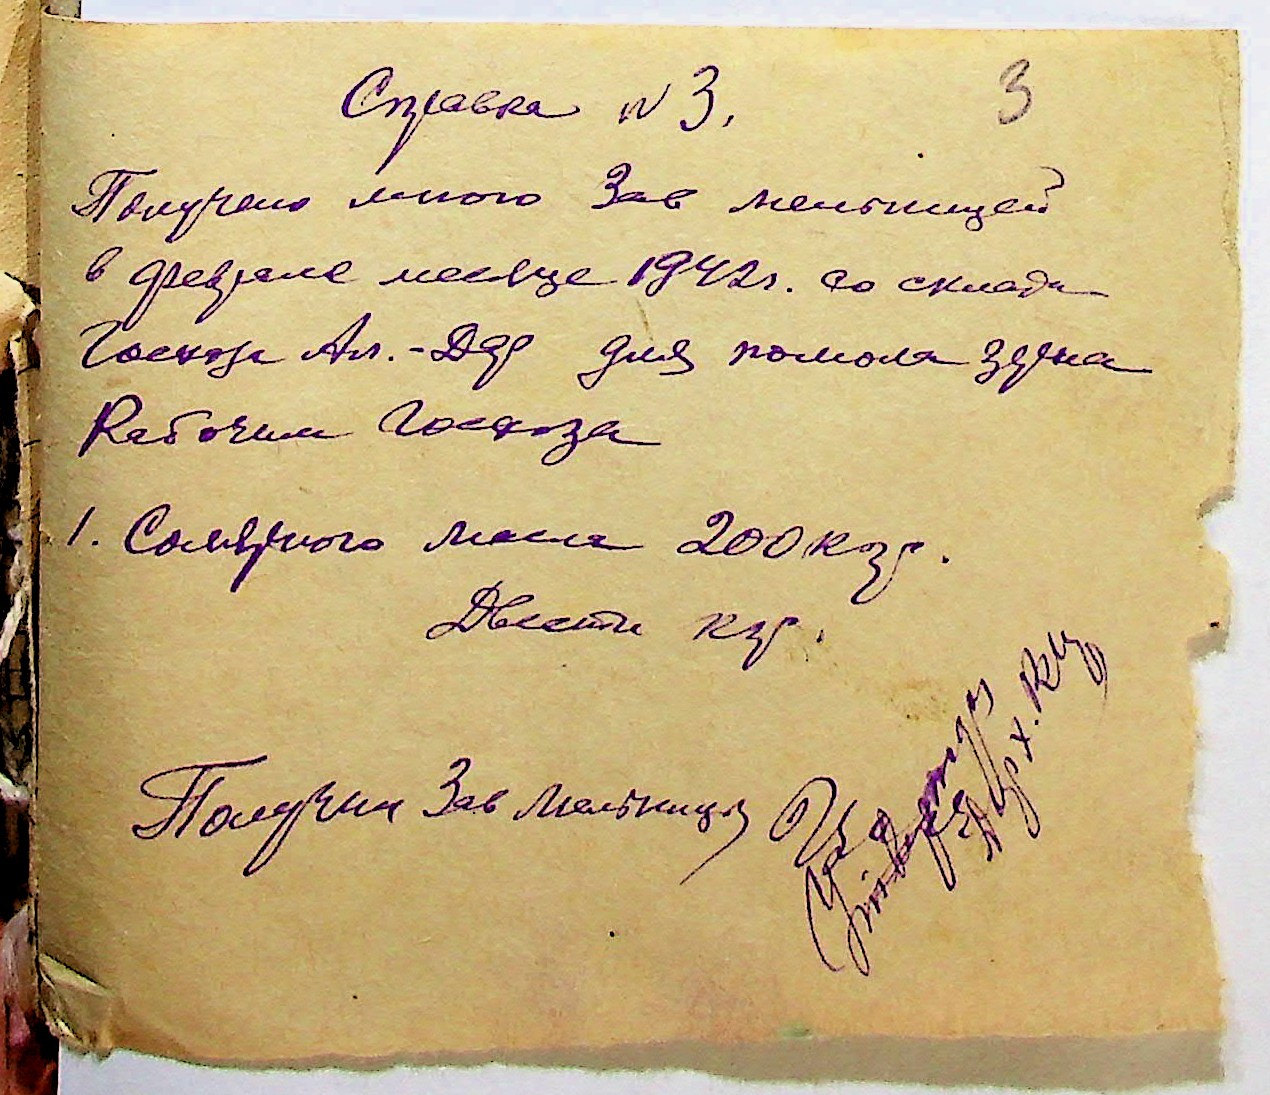 Справка № 3. 3
Получено мною Зав мельницей
в феврале месяце 1942г. со склада
Госхоза Ал.-Дар для помола зерна
Рабочим Госхоза
1. Солярного масла 200 кгр.
Двести кгр.
Получил Зав мельницы